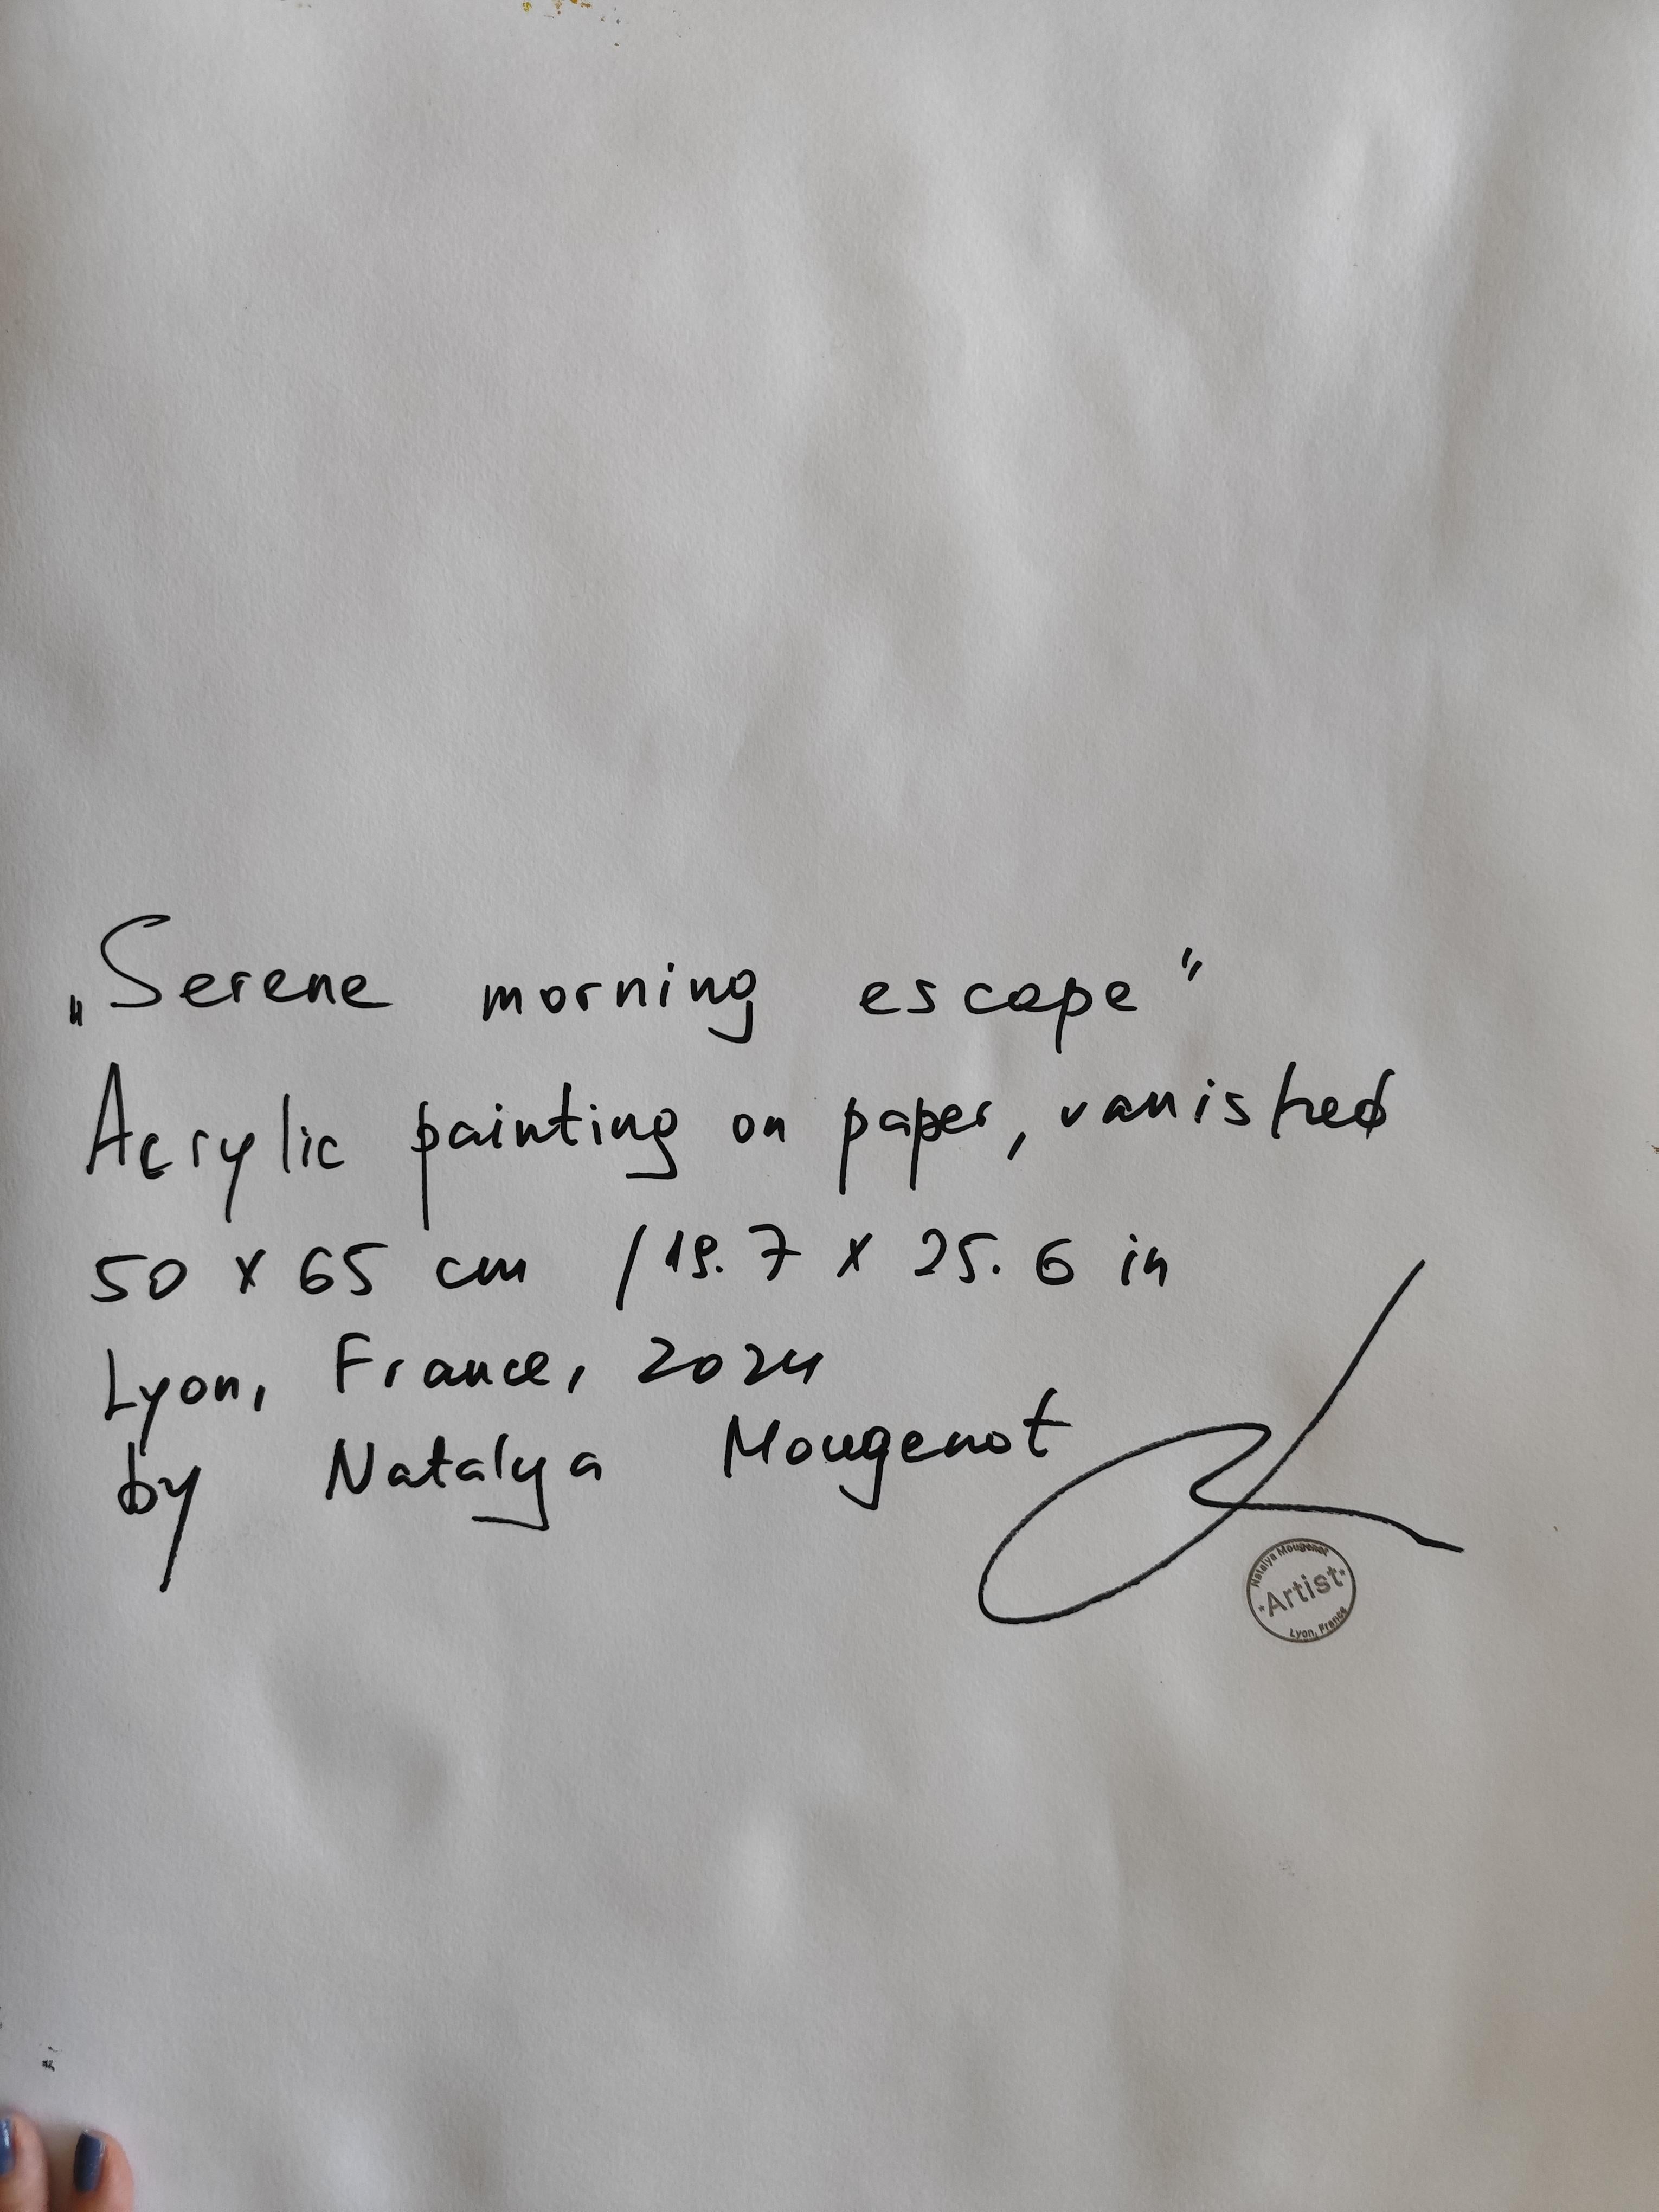 „Serene morning escape"
Acrylic painting on paper, vanished
50 x 65 cm / 19.7 x 25.6 in
Lyon, France, 2024
by Natalya Mougenot
Natalya Mougenot
Artist
Lyon, France